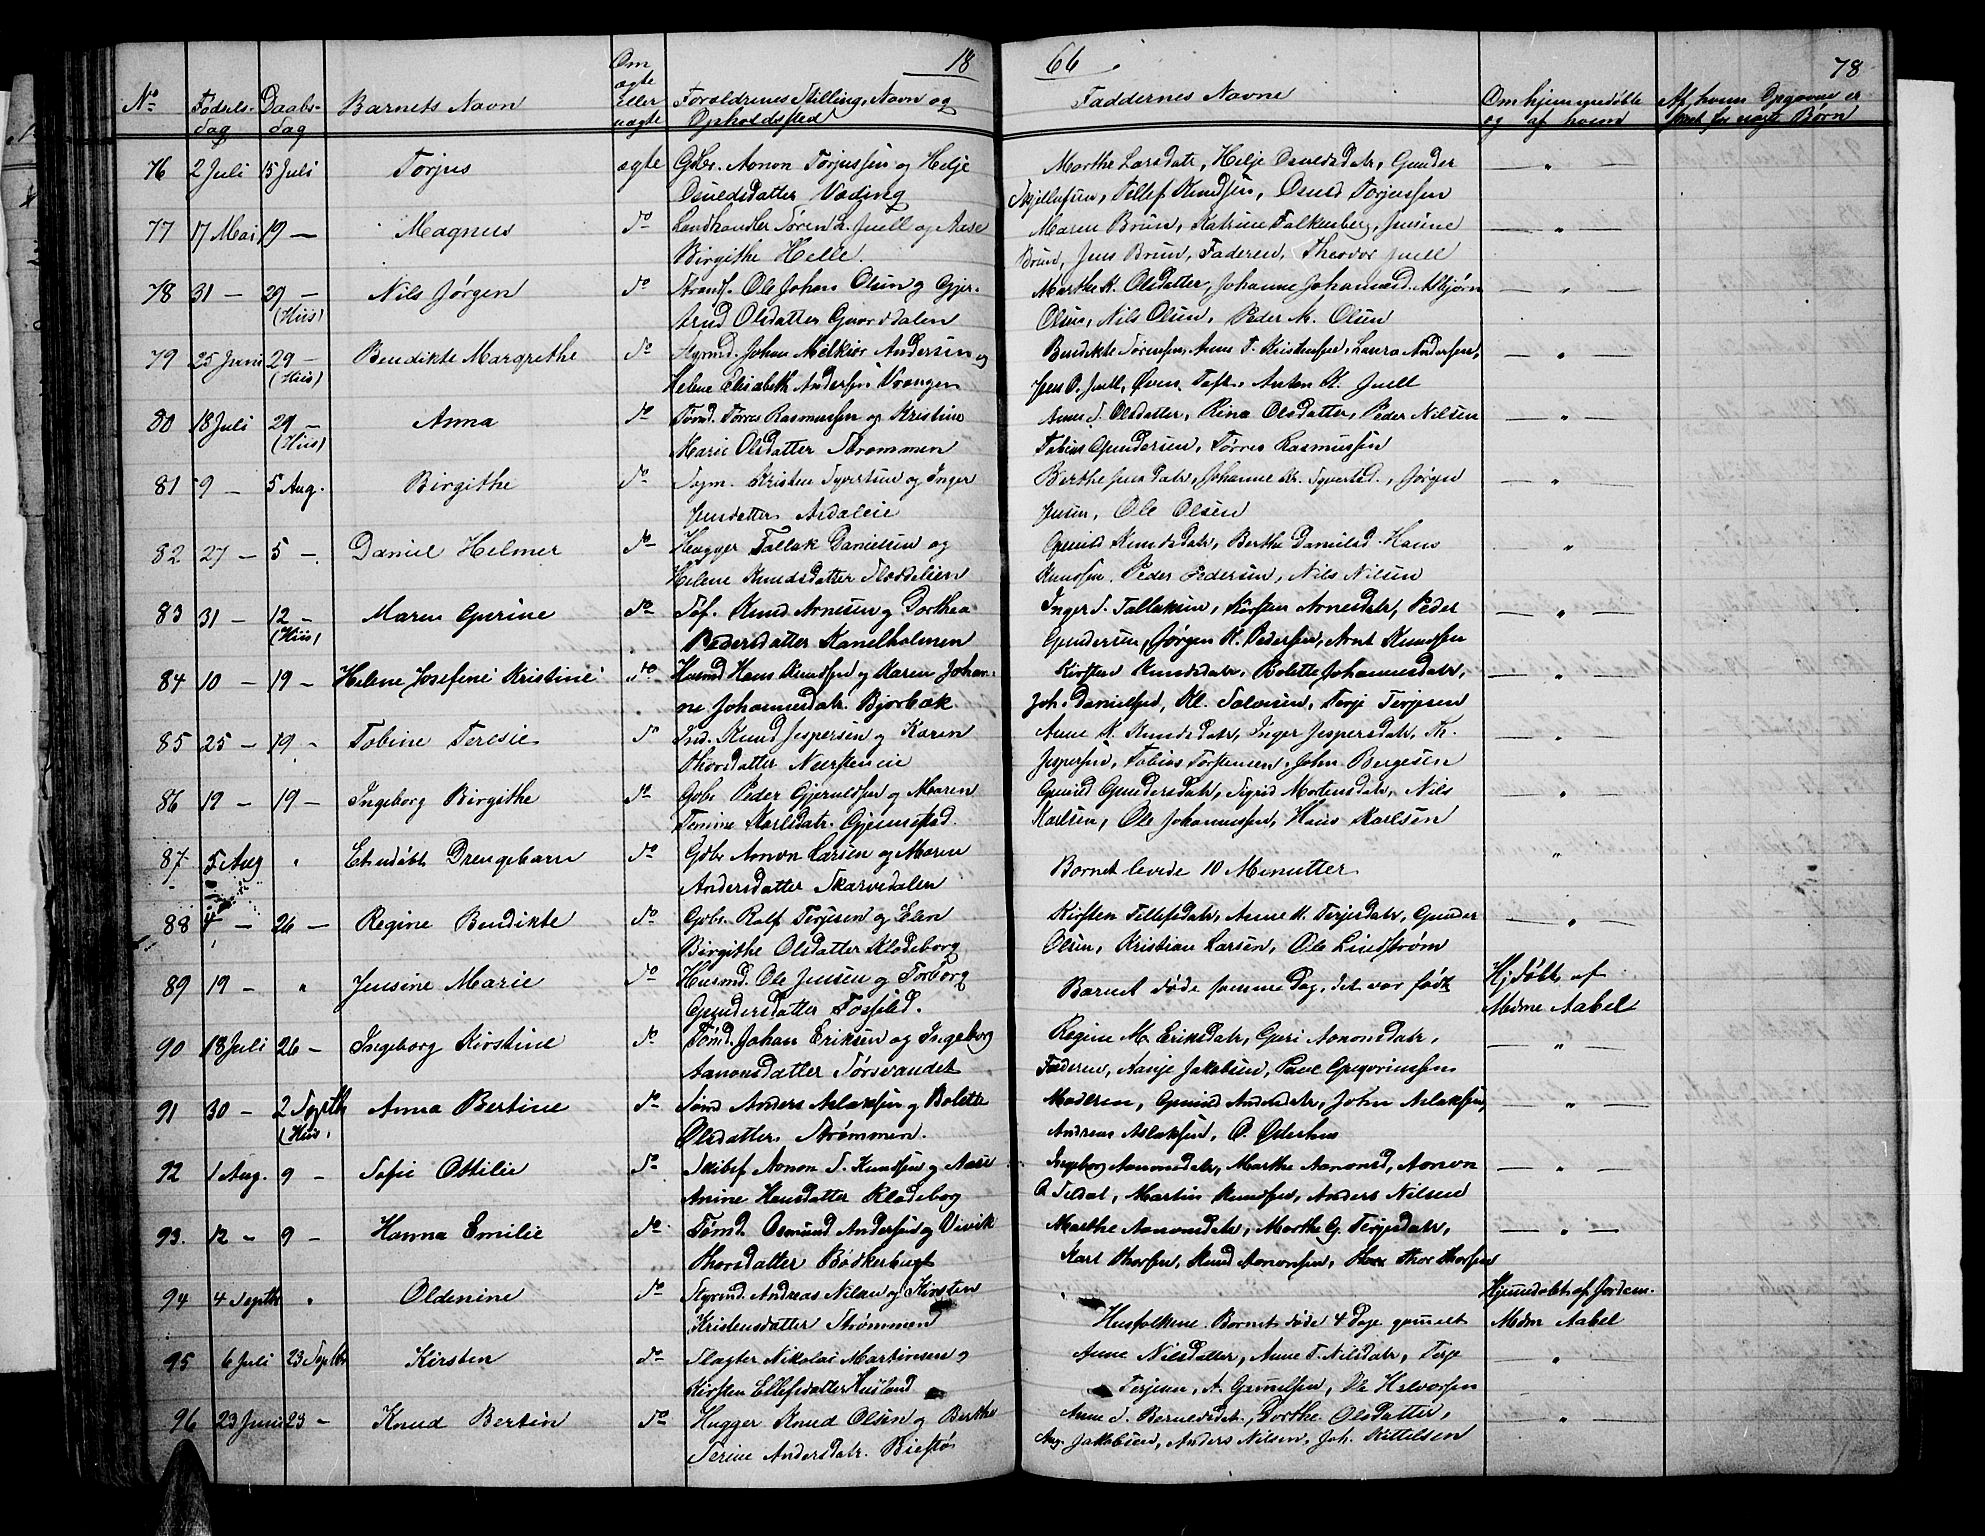 18 66 78
No Fødsels- Daabs- Barnets Navn Om ægte Forældrenes Stilling, Navn og Faddernes Navne Om hjemmedøbte Af hvem Opgaven er
dag dag eller uægte Opholdssted og af hvem for uægte Børn
76 2 Juli 15 Juli Torjus ægte Gbr. Aanon Torjussen og Helje Marthe Larsdatr, Helje Osuldsdatr, Gunder — " —
Osuldsdatter Vading Tellef Knudsen, Osuld Torjussen
77 17 Mai 19 — Magnus do Landhandler Søren L. Juell og Aase Maren Brun, Katrine Falkenberg, Jensine — " —
Birgithe Helle. Brun, Jens Brun, Faderen, Theodor Juell
78 31 — 29 — Nils Jørgen do Ole Johan Olsen og Gjer- Marthe K. Olsdatter, Johanne Johannesd. Asbjørn — " —
(Hiis) trud Olsdatter Olsen, Nils Olsen, Peder M. Olsen
79 25 Juni 29 — Bendikte Margrethe do Styrmd. Johan Melkior Andersen og Bendikte Sørensen, Anne T. Kristensen, Laura Andersen, — " —
(Hiis) Helene Elisabeth Andersen Vrangen Jens P. Juell, Anton K. Juell
80 18 Juli 29 — Anna do Tømd. Tørres Rasmussen og Kristine Anne S. Olsdatter, Rina Olsdatter, Peder Nilsen — " —
(Hiis) Marie Olsdatter Strømmen Tobias Gundersen, Tørres Rasmussen
81 9 — 5 Aug. Birgithe do Kristen Syvertsen og Inger Berthe Jensdatr, Johanne Kr. Syvertsd., Jørgen — " —
Jensdatter Jensen, Ole Olsen
82 27 — 5 — Daniel Helmer do Hugger Tallak Danielsen og Gunild Knudsdatr, Berthe Danielsd. Hans "
Helene Knudsdatter Knudsen, Peder Pedersen, Nils Nilsen
83 31 — 12 — Maren Gurine do Knud Arnesen og Dorthea Inger S. Tallaksen, Kirsten Arnesdatr, Peder — " —
(Hiis) Pedersdatter Kanelholmen Gundersen, Jørgen K. Pedersen, Arnt Knudsen
84 10 — 19 — Helene Josefine Kristine do Husmd Hans Knudsen og Karen Johan- Kirsten Knudsdatr, Bolette Johannesdatr, — " —
ne Johannesdatr. Bjorbæk Joh. Danielsen, Kl. Terje Terjesen
85 25 — 19 — Tobine Teresie do Ind. Knud Jespersen og Karen Anne K. Knudsdatr, Inger Jespersdatr, Th. — " —
Thorsdatter Jespersen, Tobias Torstensen, John Børgesen
86 12 — 19 — Ingeborg Birgithe do Gbr Peder Gjeruldsen og Maren Gunild Gundersdatr, Sigrid Mortensdatr, Nils — " —
Tomine Karlsdatr. Karlsen, Ole Johannessen, Hans Karlsen
87 5 Aug " Et udøbt Drengebarn do Gbr Aanon Larsen og Maren Barnet levede 10 Minutter "
Andersdatter Skarvedalen
88 4 — 26 — Regine Bendikte do Gbr. Rolf Terjesen og Elen Kirsten Tellefsdatr, Anne K. Terjesdatr, Gunder — " —
Birgithe Olsdatter Klødeborg Olsen, Kristian Larsen, Ole Lindstrøm
89 19 — " Jensine Marie do Husmd. Ole Jensen og Torborg Barnet døde samme Dag, det var født Hjdøbt af
Gundersdatter Madme Aabel
90 18 Juli 26 — Ingeborg Kirstine do Tømd. Johan Eriksen og Ingeborg Regine M. Eriksdatr, Guri Aanonsdatr, — " —
Aanonsdatter Sørsvandet Faderen, Aanje Jakobsen, Paul Gregoriussen
91 30 — 2 Septbr Anna Bertine do Tømd Anders Aslaksen og Bolette Moderen, Gunild Andersdatr, John Aslaksen, — " —
(Hiis) Olsdatter Strømmen. Andreas Aslaksen, O. Osterhus
92 1 Aug. 9 — Sofie Ottilie do Skibsf Aanon S. Knudsen og Aase Ingeborg Aanonsdatr, Marthe Aanonsd, Aanon — " —
Anine Hansdatter Klødeborg Martin Knudsen, Anders Nilsen
93. 12 — 9 — Hanna Emilie do Tømd. Osmund Andersen og Vivik Marthe Aanonsdatr, Marthe G. Terjesdatr, — " —
Thorsdatter Bødkerbugt Karl Thorsen, Knud Aanonsen, Thor Thorsen
94 4 Septbr " Oldenine do Styrmd. Andreas Nilsen og Kirsten Hjemmedøbt af Jordem.
Kristensdatter Strømmen Husfolkene. Barnet døde 4 Dage gammelt Madme Aabel
95 6 Juli 23 Septbr Kirsten do Slagter Nikolai Martinesen og Anne Nilsdatter, Anne T. Nilsdatr, Terje — " —
Kirsten Ellefsdatter Huseland Terjesen, A. Gunulfsen, Ole Halvorsen
96 23 Juni 23 — Knud Bertin do Hugger Knud Olsen og Berthe Anne S. Dorthe Olsdatter, — " —
Serine Andersdatr. Biestø Aug. Jakobsen, Anders Nilsen, Joh. Kittelsen